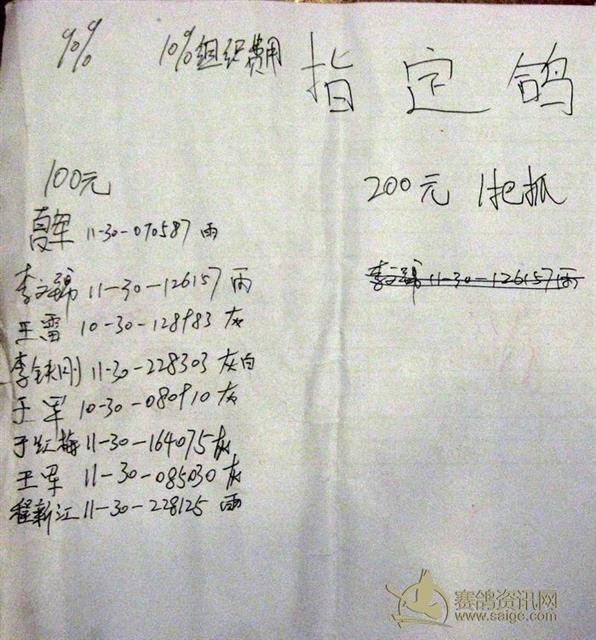 % 10%组织费用 指定鸽
100元 200元 1把抓
11-30-070587 雨
李文锦 11-30-126157 雨 李文锦 11-30-126157 雨
王雷 10-30-128983 灰
李铁刚 11-30-228303 灰白
于军 10-30-080910 灰
于红梅 11-30-164075 灰
王军 11-30-085030 灰
程新江 11-30-228125 雨
赛鸽资讯网
www.saige.com